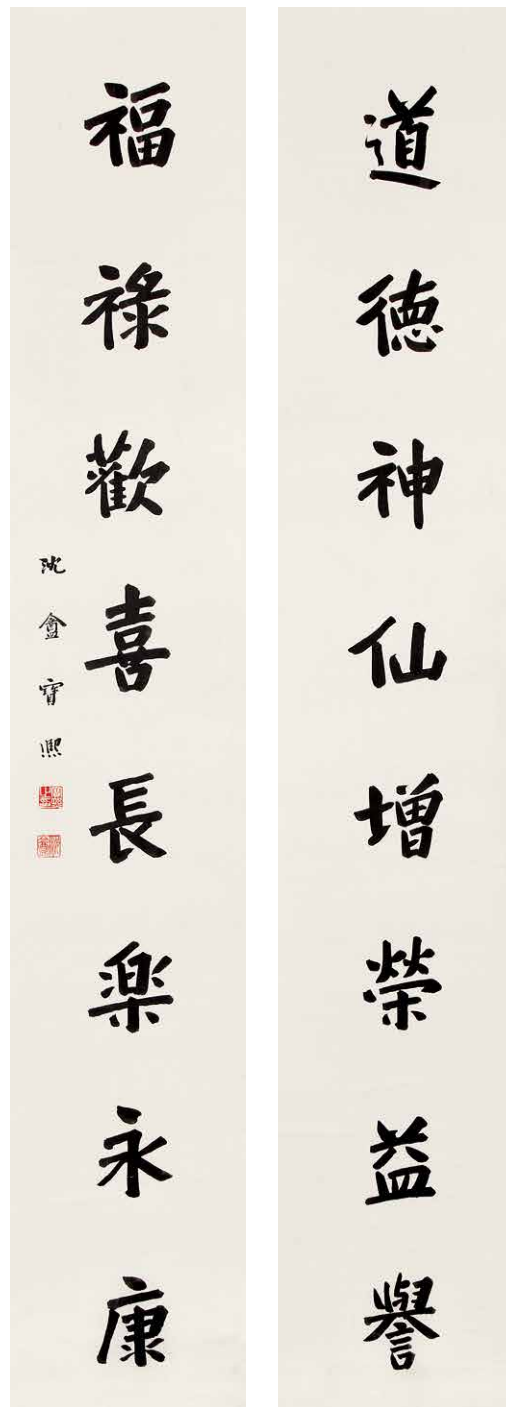 道德神仙增榮益譽
福祿歡喜長樂永康
沈盦寶熙